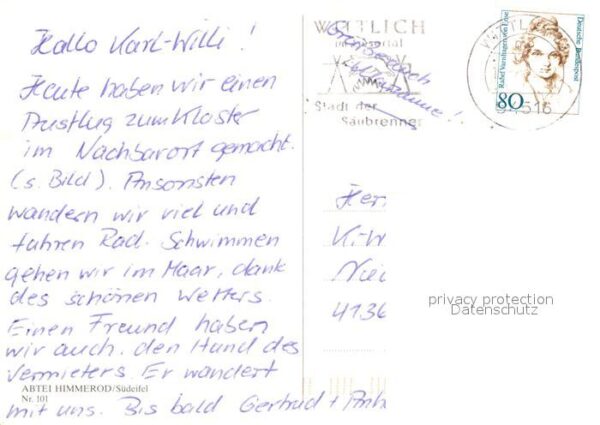 Hallo Karl-Willi!
Heute haben wir einen
Ausflug zum Kloster
im Nachbarort gemacht.
(s. Bild). Ansonsten
wandern wir viel und
fahren Rad. Schwimmen
gehen wir im Maar, dank
des schönen Wetters.
Einen Freund haben
wir auch, den Hund des
Vermieters. Er wandert
ABTEI HIMMEROD/Südeifel
Nr. 101
mit uns. Bis bald Gertrud +
WITTLICH
Stadt der
Säubrenner
Rahel Varnhagen von Ense
Deutsche Bundespost
80
516
Her
K.-W
Nie
4136
privacy protection
Datenschutz